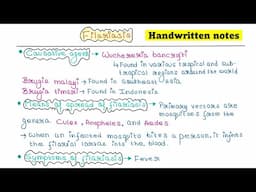 Filariasis
Handwritten notes
Causative agent → Wuchereria bancrofti
↳ Found in various tropical and sub-
tropical regions around the world
Brugia malayi → Found in southeast Asia
Brugia timori → Found in Indonesia
Means of spread of filariasis → Primary vectors are
mosquitoes from the
genera Culex, Anopheles, and Aedes
→ When an infected mosquito bites a person, it injects
the filarial larvae into the blood.
Symptoms of filariasis → Fever